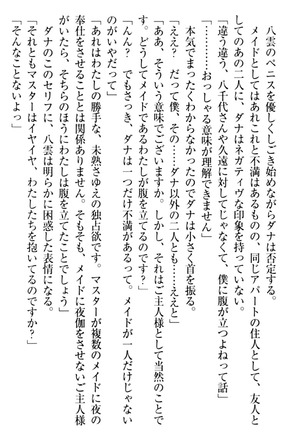 八雲のペニスを優しくしごき始めながらダナは否定する。
メイドとしてはあれこれと不満はあるものの、同じアパートの住人として、友人と
してのあの二人に、ダナはネガティヴな印象を持っていない。
「違う違う、八千代さんや久遠に対してじゃなくて、僕に腹が立つよねって話」
「⋯⋯⋯⋯おっしゃる意味が理解できません」
本気でまったくわからなかったのでダナは小さく首を振る。
「ええ? だって僕、その⋯⋯ダナ以外の二人とも⋯⋯ええと」
「ああ、そういう意味でございますか。しかし、それはご主人様として当然のことで
す。どうしてメイドであるわたしが腹を立てるのでしょう」
「んん? でもさっき、ダナは一つだけ不満があるって。メイドが一人だけじゃない
のがいやだって」
「あれはわたしの勝手な、未熟さゆえの独占欲です。マスターが複数のメイドに夜の
奉仕をさせることとは関係ありません。そもそも、メイドに夜伽をさせないご主人様
がいたら、そちらのほうにわたしは腹を立てたことでしょう」
ダナのこのセリフに、八雲は明らかに困惑した表情になる。
「それともマスターはイヤイヤ、わたしたちを抱いてるのですか?」
「そんなことないよっ」